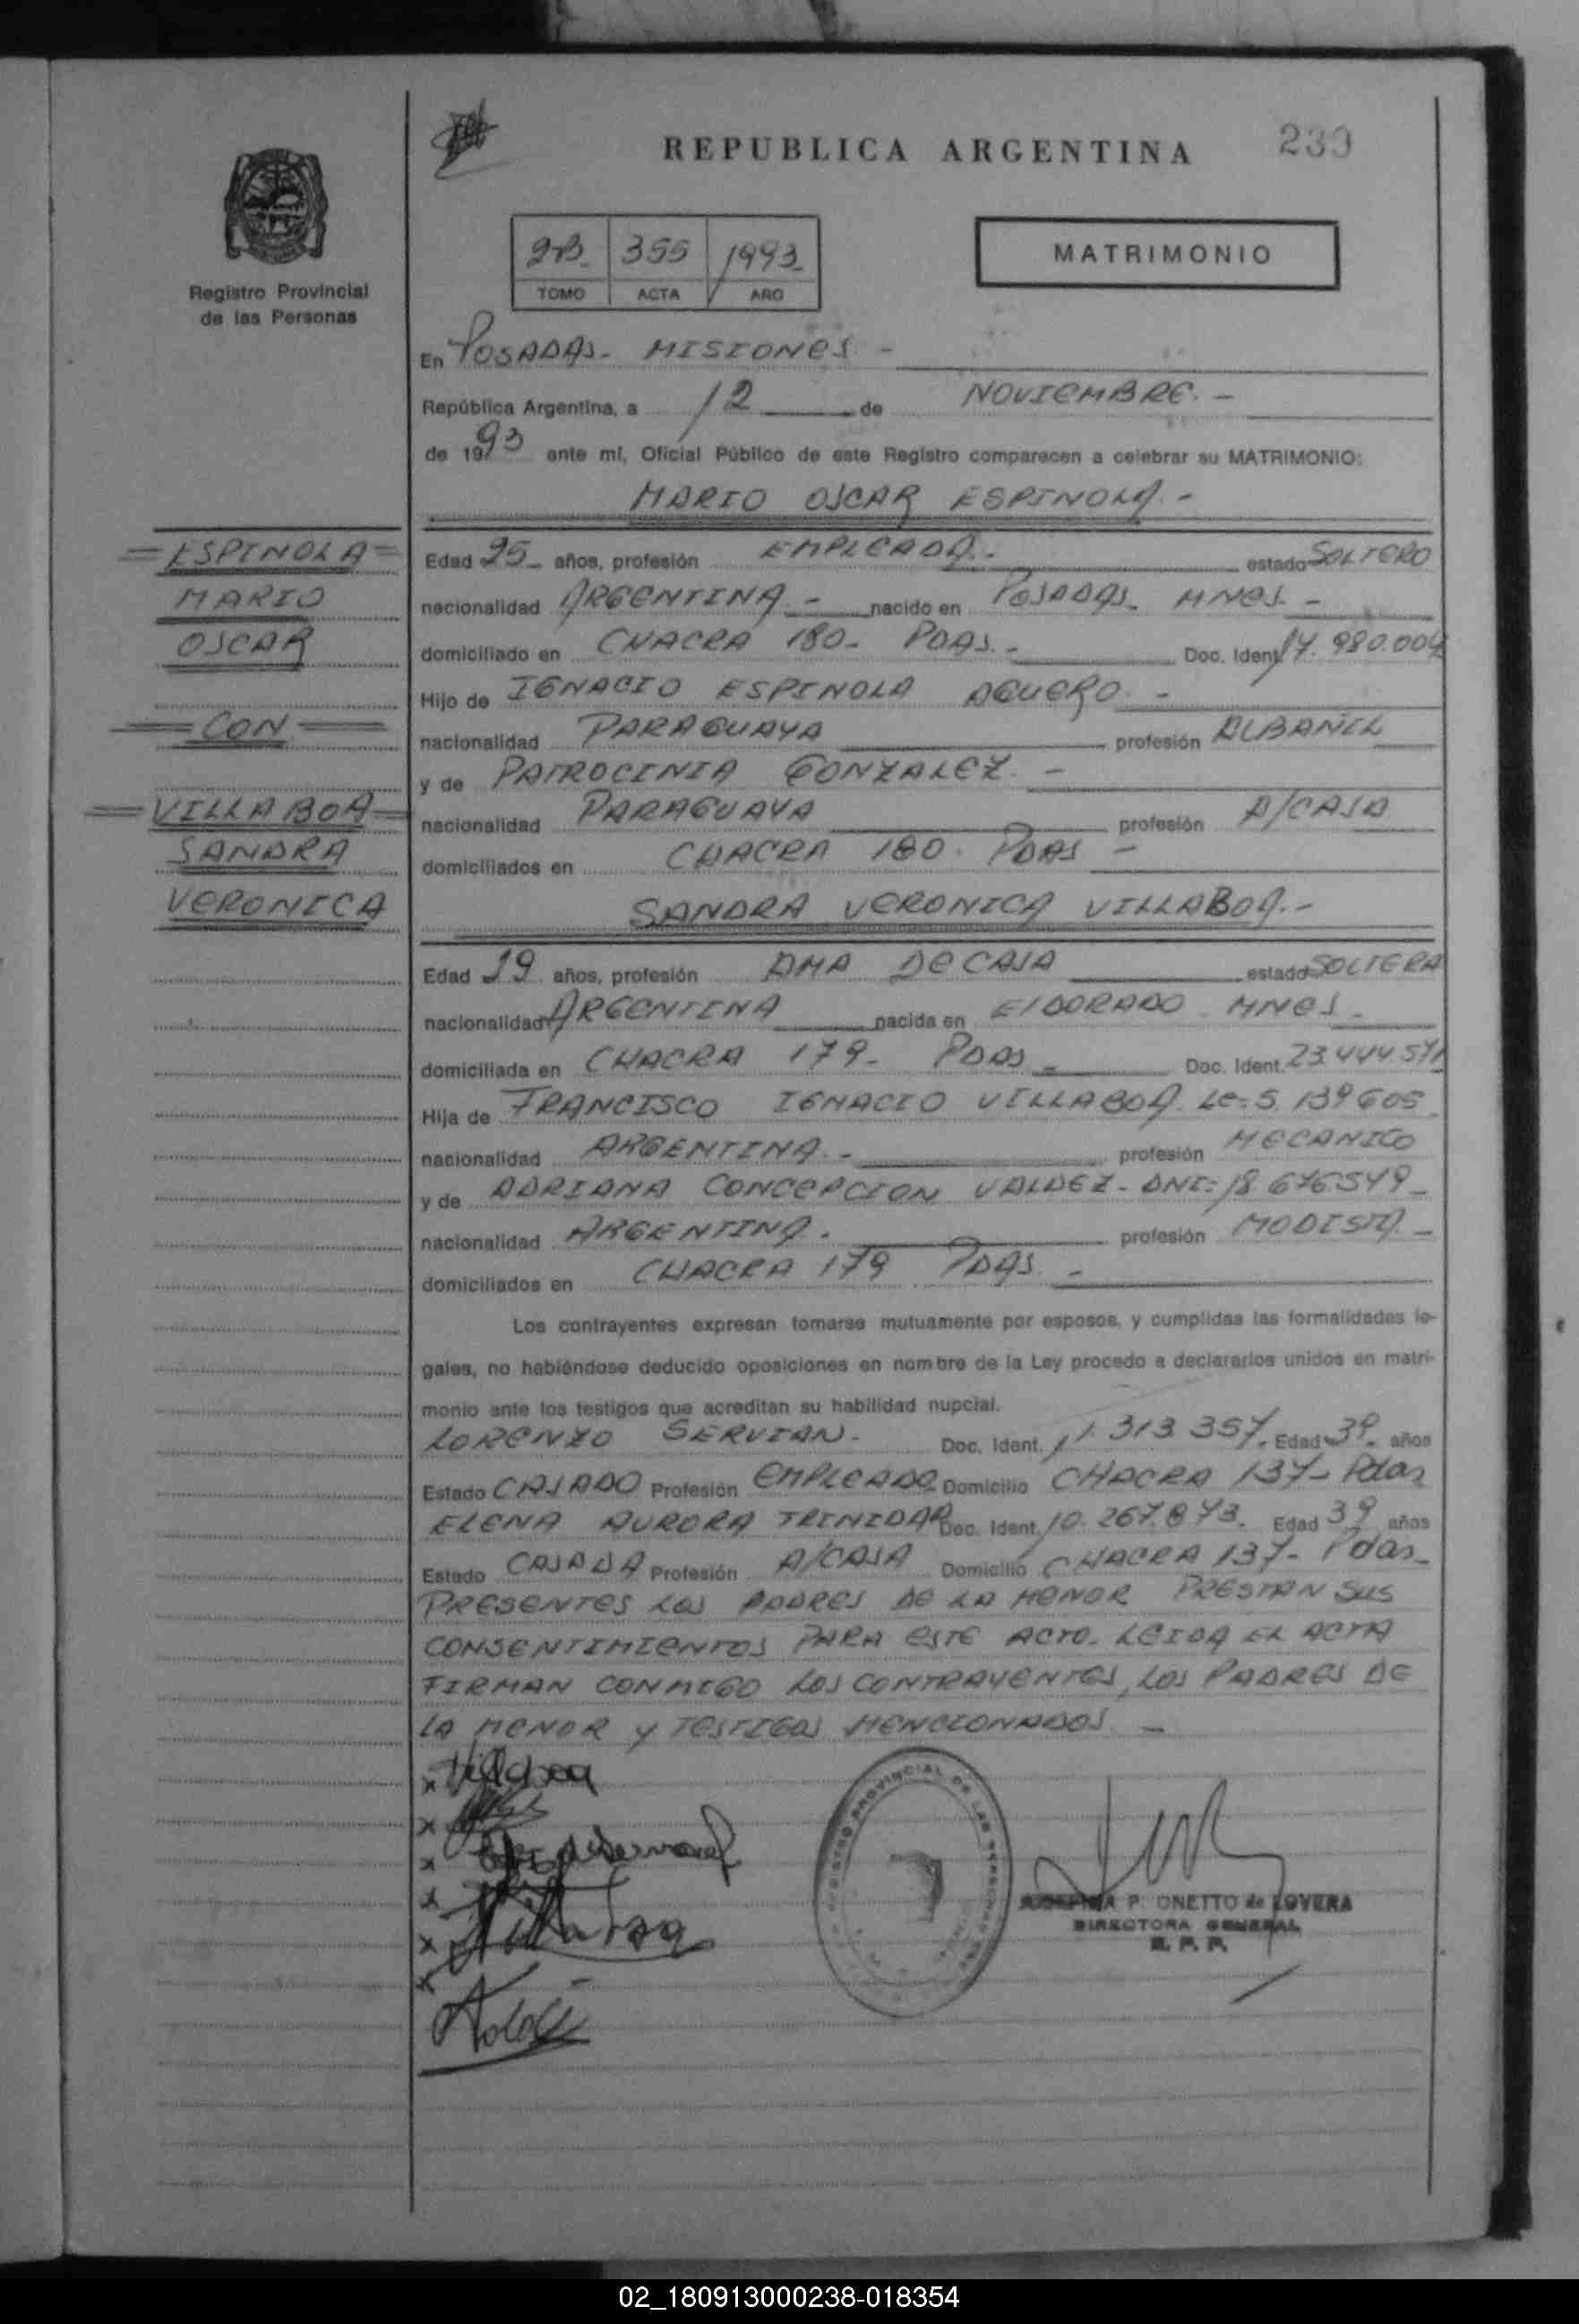 REPUBLICA ARGENTINA
239
2-B. 355 1993.
TOMO ACTA AÑO
MATRIMONIO
Registro Provincial
de las Personas
En POSADAS- MISIONES -
República Argentina, a 12 de NOVIEMBRE. -
de 1993 ante mí, Oficial Público de este Registro comparecen a celebrar su MATRIMONIO:
MARIO OSCAR ESPINOLA. -
ESPINOLA
MARIO
OSCAR
CON
VILLABOA
SANDRA
VERONICA
Edad 25 años, profesión EMPLEADA.- estado SOLTERO
nacionalidad ARGENTINA.- nacido en POSADAS. MNES. -
domiciliado en CHACRA 180- PDAS.- Doc. Ident. 17.980.004
Hijo de IGNACIO ESPINOLA AGUERO. -
nacionalidad PARAGUAYA profesión ALBAÑIL
y de PATROCINIA GONZALEZ. -
nacionalidad PARAGUAYA profesión A/CASA
domiciliados en CHACRA 180. PDAS -
SANDRA VERONICA VILLABOA.-
Edad 19 años, profesión AMA DE CASA estado SOLTERA
nacionalidad ARGENTINA nacida en ELDORADO MNES.
domiciliada en CHACRA 179- PDAS - Doc. Ident. 23.444.571
Hija de FRANCISCO IGNACIO VILLABOA. LE=5.139605
nacionalidad ARGENTINA.- profesión MECANICO
y de ADRIANA CONCEPCION VALDEZ- DNI=18.676.549-
nacionalidad ARGENTINA. profesión MODISTA.-
domiciliados en CHACRA 179 PDAS. -
Los contrayentes expresan tomarse mutuamente por esposos, y cumplidas las formalidades le-
gales, no habiéndose deducido oposiciones en nombre de la Ley procedo a declararlos unidos en matri-
monio ante los testigos que acreditan su habilidad nupcial.
LORENZO SERVIAN. Doc. Ident. 11.313.357. Edad 39. años
Estado CASADO Profesión EMPLEADO. Domicilio CHACRA 137- Pdas
ELENA AURORA TRINIDAD Doc. Ident. 10.267.873. Edad 39 años
Estado CASADA Profesión A/CASA Domicilio CHACRA 137- Pdas-
PRESENTES LOS PADRES DE LA MENOR PRESTAN SUS
CONSENTIMIENTOS PARA ESTE ACTO. LEIDA EL ACTA
FIRMAN CONMIGO LOS CONTRAYENTES, LOS PADRES DE
LA MENOR Y TESTIGOS MENCIONADOS. -
REGISTRO PROVINCIAL DE LAS PERSONAS
P. ONETTO de LOVERA
DIRECTORA GENERAL
R. P. P.
02_180913000238-018354